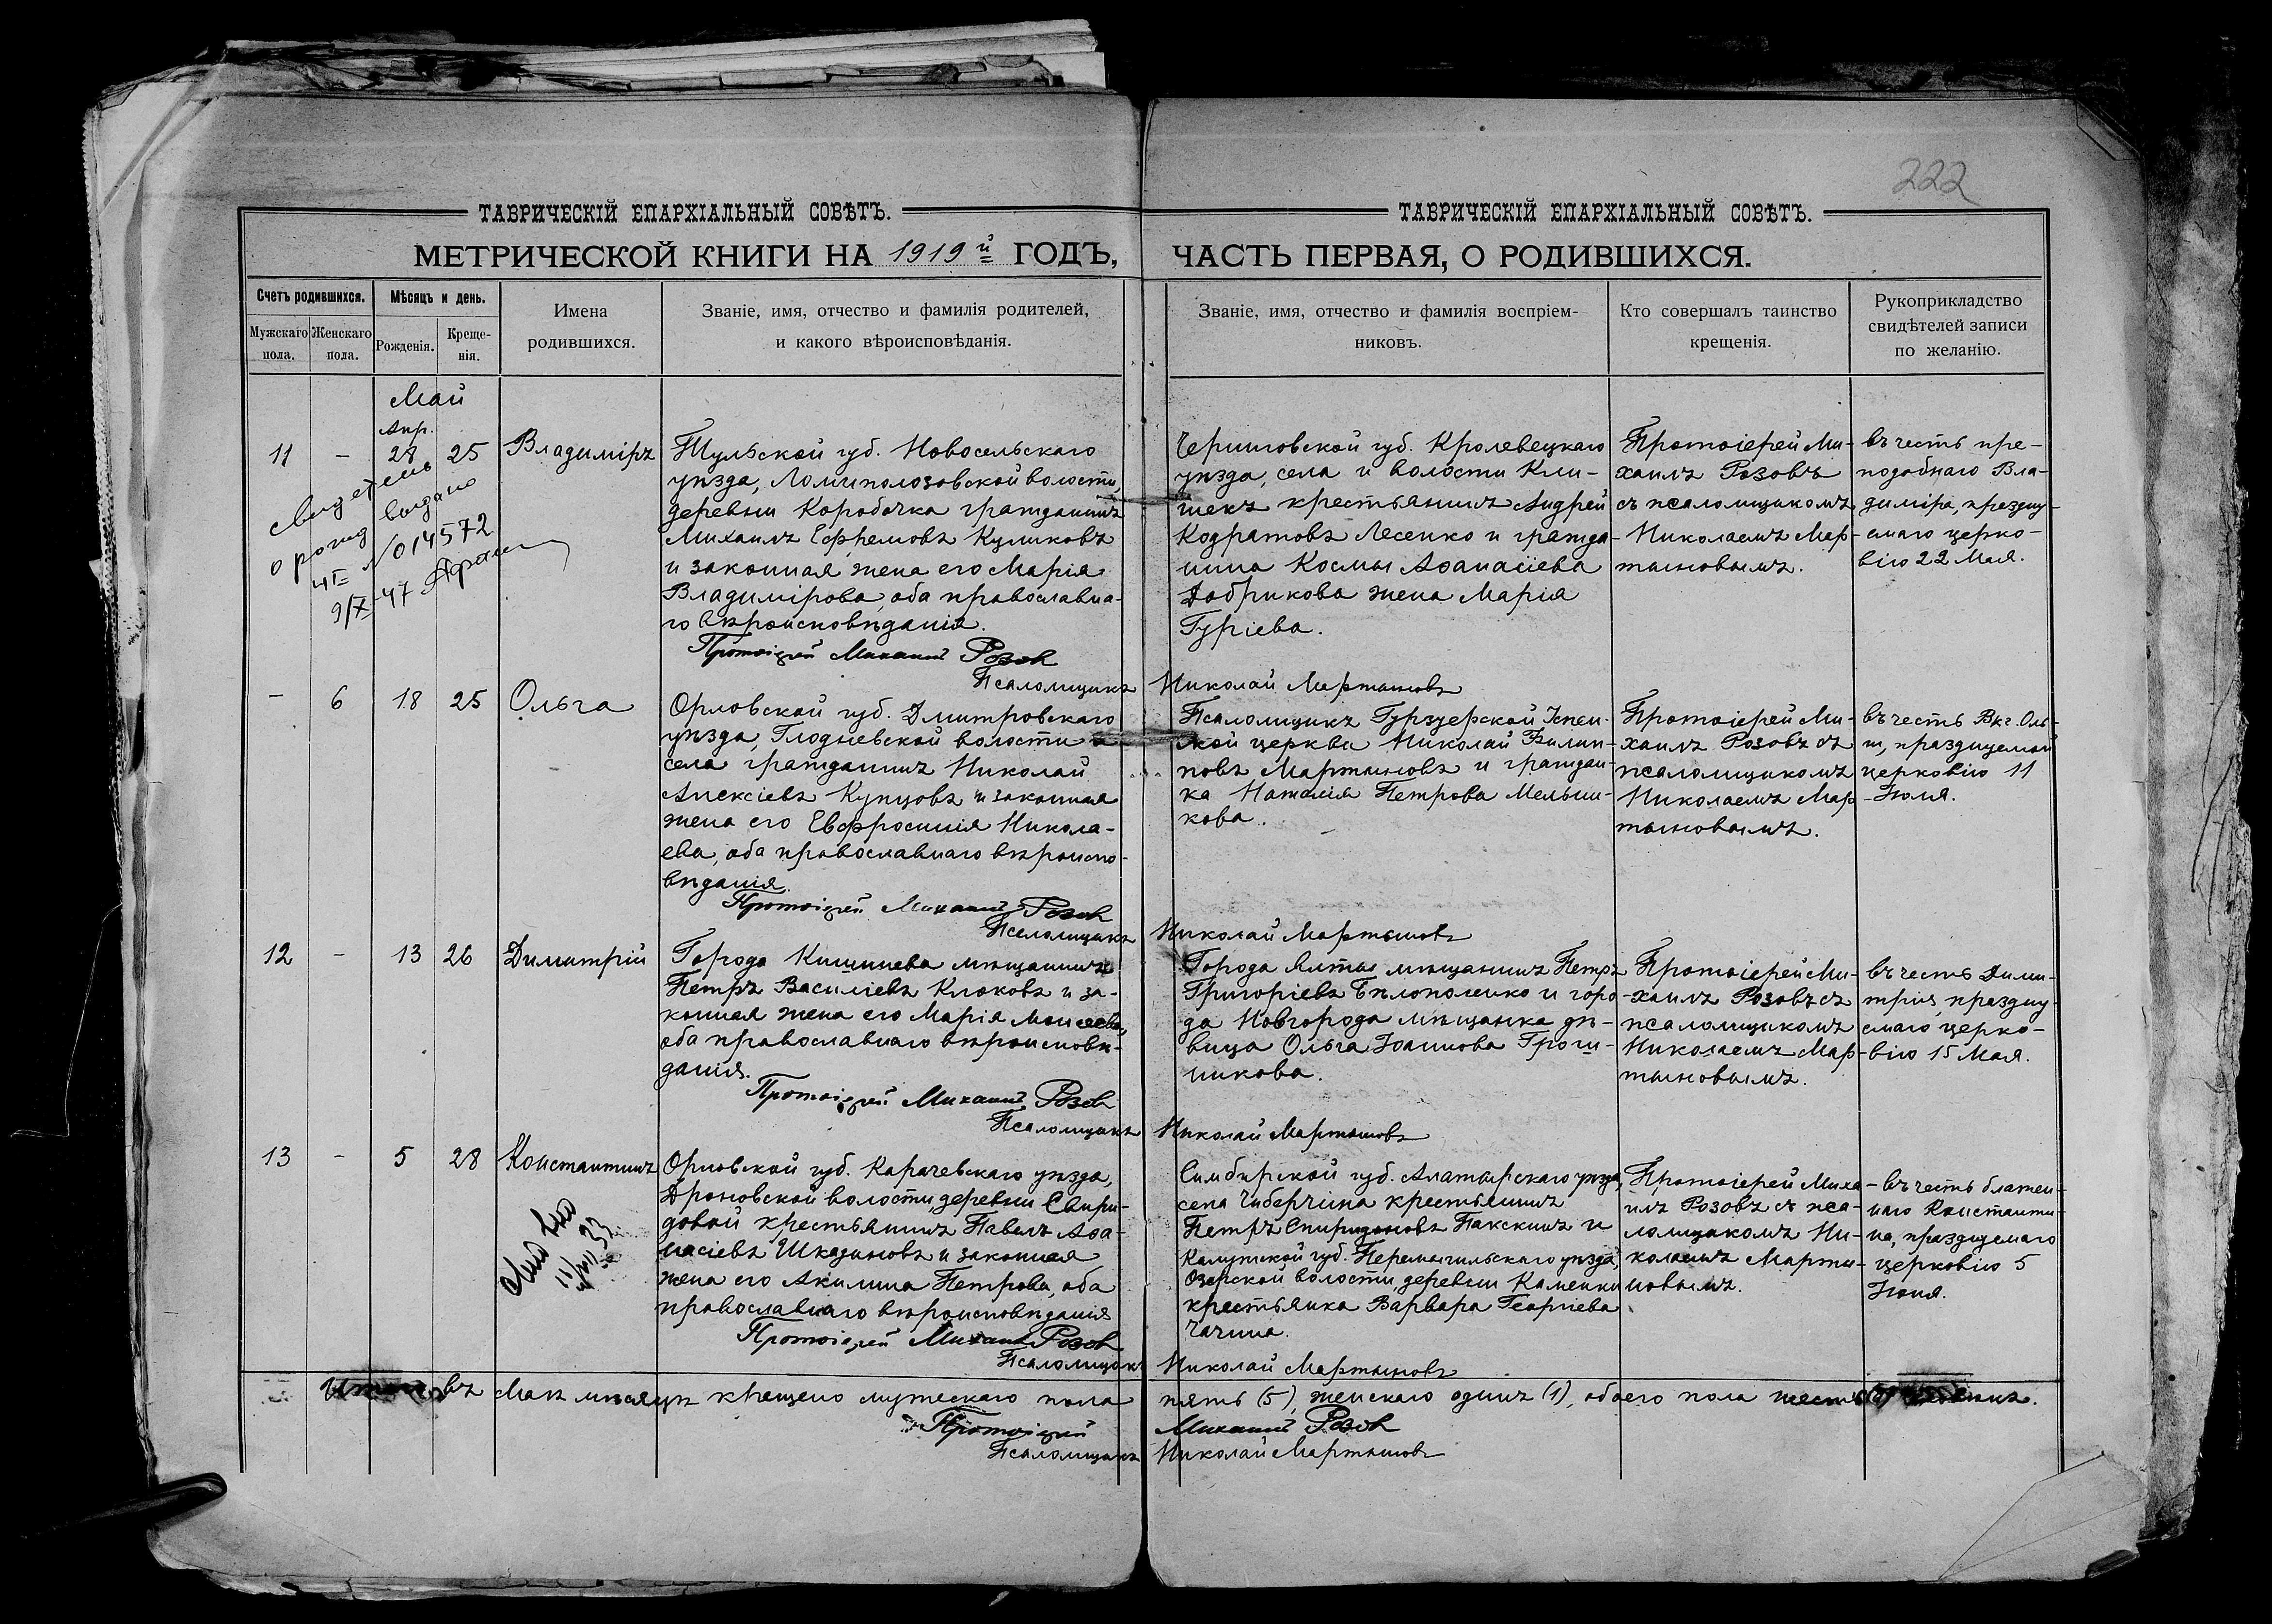 222
ТАВРИЧЕСКІЙ ЕПАРХІАЛЬНЫЙ СОВѢТЪ.
МЕТРИЧЕСКОЙ КНИГИ НА 1919й ГОДЪ,
Счетъ родившихся.
Мужскаго пола.
Женскаго пола.
Мѣсяцъ и день.
Рожденія.
Крещенія.
Имена
родившихся.
Званіе, имя, отчество и фамилія родителей,
и какого вѣроисповѣданія.
ТАВРИЧЕСКІЙ ЕПАРХІАЛЬНЫЙ СОВѢТЪ.
ЧАСТЬ ПЕРВАЯ, О РОДИВШИХСЯ.
Званіе, имя, отчество и фамилія воспріем-
никовъ.
Кто совершалъ таинство
крещенія.
Рукоприкладство
свидѣтелей записи
по желанію.
Май
Апр.
11 - 28 25 Владиміръ
о рожд выдано
№ 014572
9/IX-47
Тульской губ. Новосельскаго
уѣзда, Ломиполозовской волости,
деревни Коробочка гражданинъ
Михаилъ Ефремовъ Куликовъ
и законная жена его Марія
Владимірова, оба православна-
го вѣроисповѣданія.
Протоіерей Михаилъ Розовъ
Псаломщикъ Николай Мартыновъ
Черниговской губ. Кролевецкаго
уѣзда, села и волости Кли-
шекъ крестьянинъ Андрей
Кодратовъ Лесенко и гражда-
нина Космы Аѳанасіева
Добрикова жена Марія
Гуріева.
Протоіерей Ми-
хаилъ Розовъ
съ псаломщикомъ
Николаемъ Мар-
тыновымъ.
въ честь пре-
подобнаго Вла-
диміра, праздну-
емаго церко-
вію 22 Мая.
- 6 18 25 Ольга
Орловской губ. Дмитровскаго
уѣзда, Глодневской волости и
села гражданинъ Николай
Алексіевъ Купцовъ и законная
жена его Евфросинія Никола-
ева, оба православнаго вѣроиспо-
вѣданія.
Протоіерей Михаилъ Розовъ
Псаломщикъ Николай Мартыновъ
Псаломщикъ Гурзуфской Успен-
ской церкви Николай Филип-
повъ Мартыновъ и граждан-
ка Наталія Петрова Мельни-
кова.
Протоіерей Ми-
хаилъ Розовъ съ
псаломщикомъ
Николаемъ Мар-
тыновымъ.
въ честь Вкг. Оль-
ги, празднуемой
церковію 11
Іюля.
12 - 13 26 Димитрій
Города Кишинева мѣщанинъ
Петръ Василіевъ Клюковъ и за-
конная жена его Марія Моисеева,
оба православнаго вѣроисповѣ-
данія.
Протоіерей Михаилъ Розовъ
Псаломщикъ Николай Мартыновъ
Города Ялты мѣщанинъ Петръ
Григоріевъ Бѣлополенко и горо-
да Новгорода мѣщанка дѣ-
вица Ольга Іоаннова Грош-
никова.
Протоіерей Ми-
хаилъ Розовъ съ
псаломщикомъ
Николаемъ Мар-
тыновымъ.
въ честь Дими-
трія, праздну-
емаго церко-
вію 15 Мая.
13 - 5 28 Константинъ
Орловской губ. Карачевскаго уѣзда,
Дроновской волости, деревни Свири-
довой крестьянинъ Павелъ Аѳа-
насіевъ Шкадиновъ и законная
жена его Акилина Петрова, оба
православнаго вѣроисповѣданія
Протоіерей Михаилъ Розовъ
Псаломщикъ Николай Мартыновъ
Симбирской губ. Алатырскаго уѣзда,
села Чиберчина крестьянинъ
Петръ Спиридоновъ Паксинъ и
Калужской губ. Перемышльскаго уѣзда,
Озерской волости, деревни Каменки
крестьянка Варвара Георгіева
Чачина.
Протоіерей Миха-
илъ Розовъ съ пса-
ломщикомъ Ни-
колаемъ Марты-
новымъ.
въ честь блажен-
наго Константи-
на, празднуемаго
церковію 5
Іюня.
Итого въ Маѣ мѣсяцѣ крещено мужескаго пола пять (5), женскаго одинъ (1), обоего пола шесть (6)
Протоіерей Михаилъ Розовъ
Псаломщикъ Николай Мартыновъ